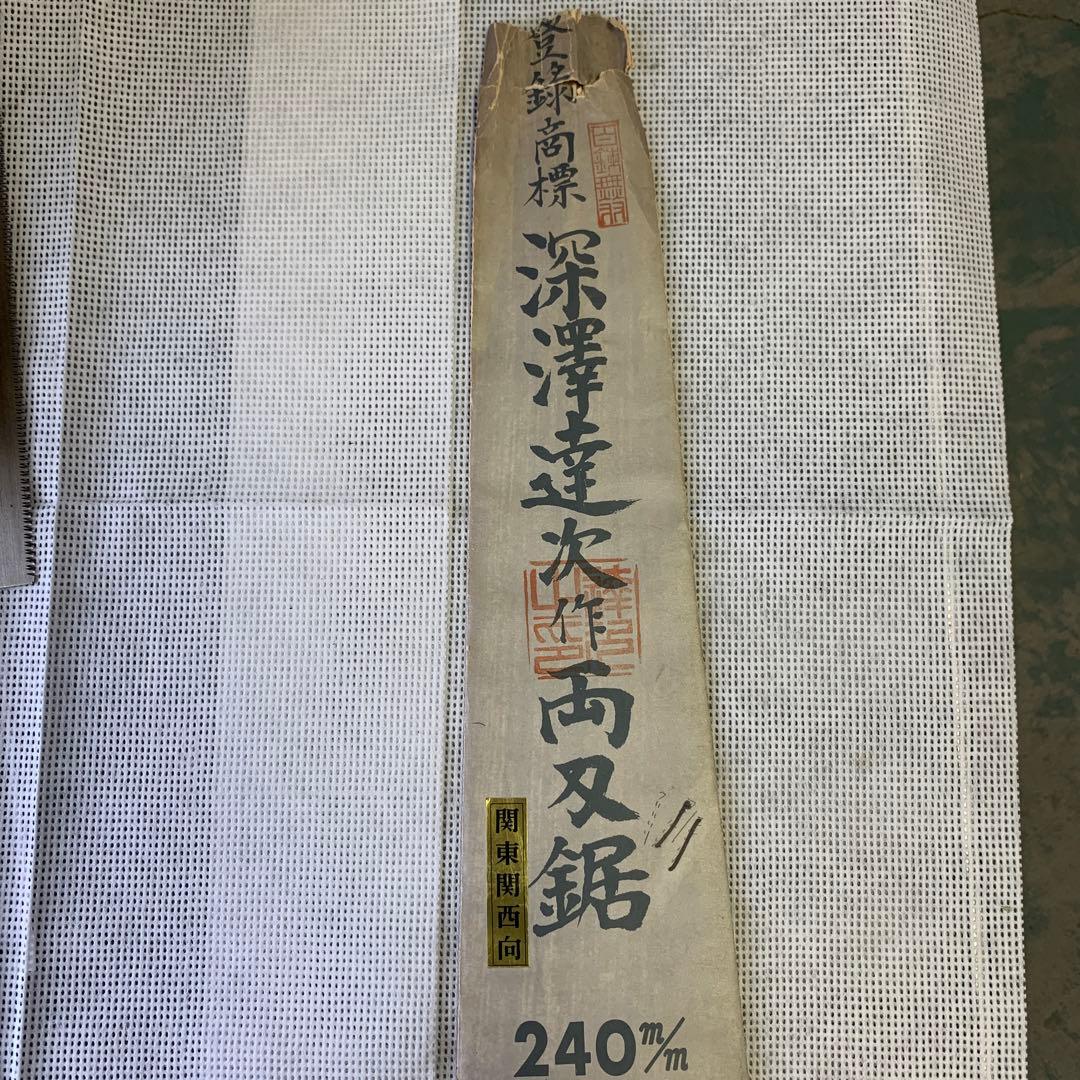 登録商標
深澤達次作両刄鋸
関東関西向
240m/m